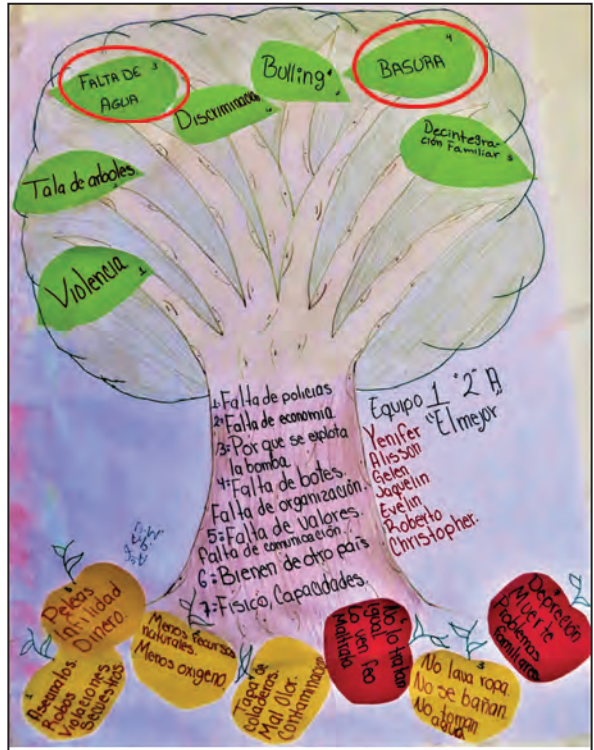 FALTA DE 3
AGUA
Discriminacio
6
Bulling
BASURA 4
Decintegra-
ción Familiar 5
Tala de arboles.
Violencia 1
1: Falta de policias
2: Falta de economia
3: Por que se explota
la bomba
4: Falta de botes.
Falta de organización.
5: Falta de valores.
Falta de comunicación.
6: Bienen de otro país
7: Fisico, Capacidades.
Equipo 1 "2" A
"El mejor
Yenifer
Alisson
Gelen
Jaquelin
Evelin
Roberto
Christopher.
Peleas
Infilidad
Dinero.
1
Asesinatos.
Robos
Violaciones
Secuestros
Menos recursos
naturales.
Menos oxigeno.
Tapa de
coladeras.
Mal Olor.
Contaminacion
No lo tratan
igual
Lo ven feo
Maltrato
3
No lava ropa.
No se bañan.
No toman
agua.
Depreción
Muerte
Problemas
Familiares